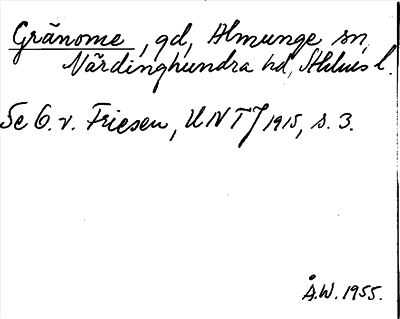 Gränome, gd, Almunge sn,
Närdinghundra hd, Sthlms l.
Se O. v. Friesen, UNT J 1915, s. 3.
Å.W. 1955.